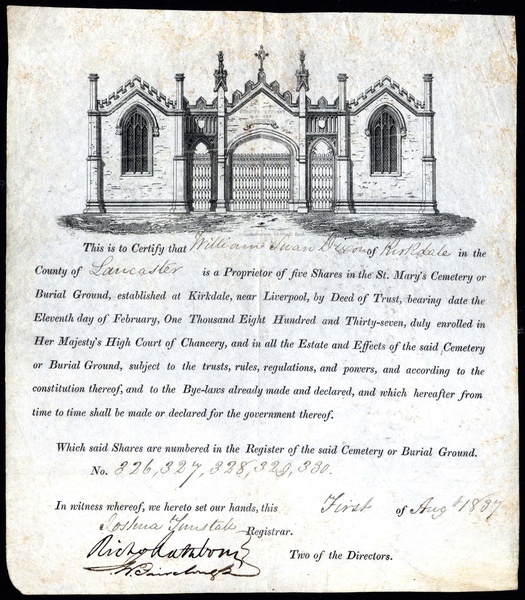 This is to Certify that William Swan Dixon of Kirkdale in the
County of Lancaster is a Proprietor of five Shares in the St. Mary's Cemetery or
Burial Ground, established at Kirkdale, near Liverpool, by Deed of Trust, bearing date the
Eleventh day of February, One Thousand Eight Hundred and Thirty-seven, duly enrolled in
Her Majesty's High Court of Chancery, and in all the Estate and Effects of the said Cemetery
or Burial Ground, subject to the trusts, rules, regulations, and powers, and according to the
constitution thereof, and to the Bye-laws already made and declared, and which hereafter from
time to time shall be made or declared for the government thereof.
Which said Shares are numbered in the Register of the said Cemetery or Burial Ground.
No. 326, 327, 328, 329, 330.
In witness whereof, we hereto set our hands, this First of Augt 1837
Joshua Tunstall Registrar.
Richd Rathbone
Two of the Directors.